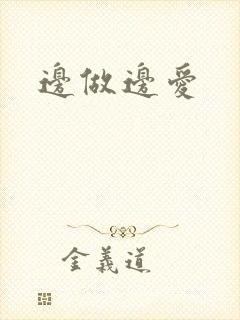 邊做邊愛
金義道